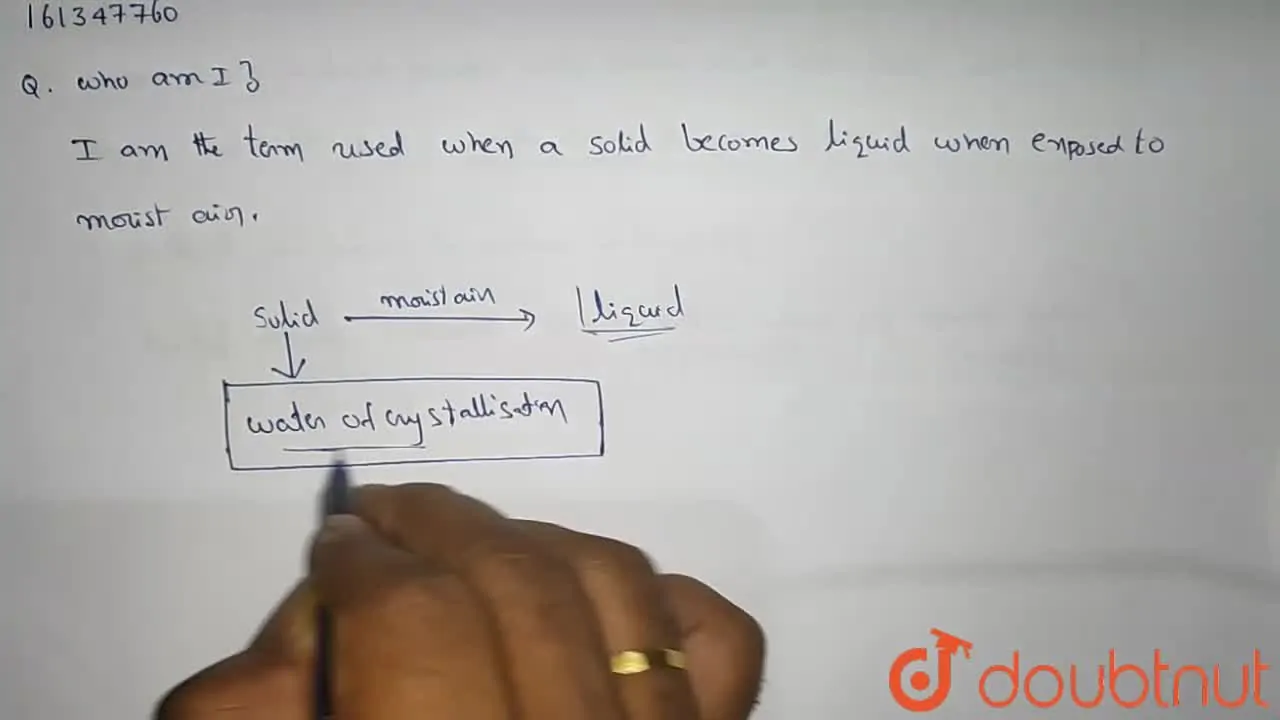 161347760
Q. who am I }
I am the term used when a solid becomes liquid when exposed to
moist air.
solid moist air liquid
water of crystallisation
doubtnut